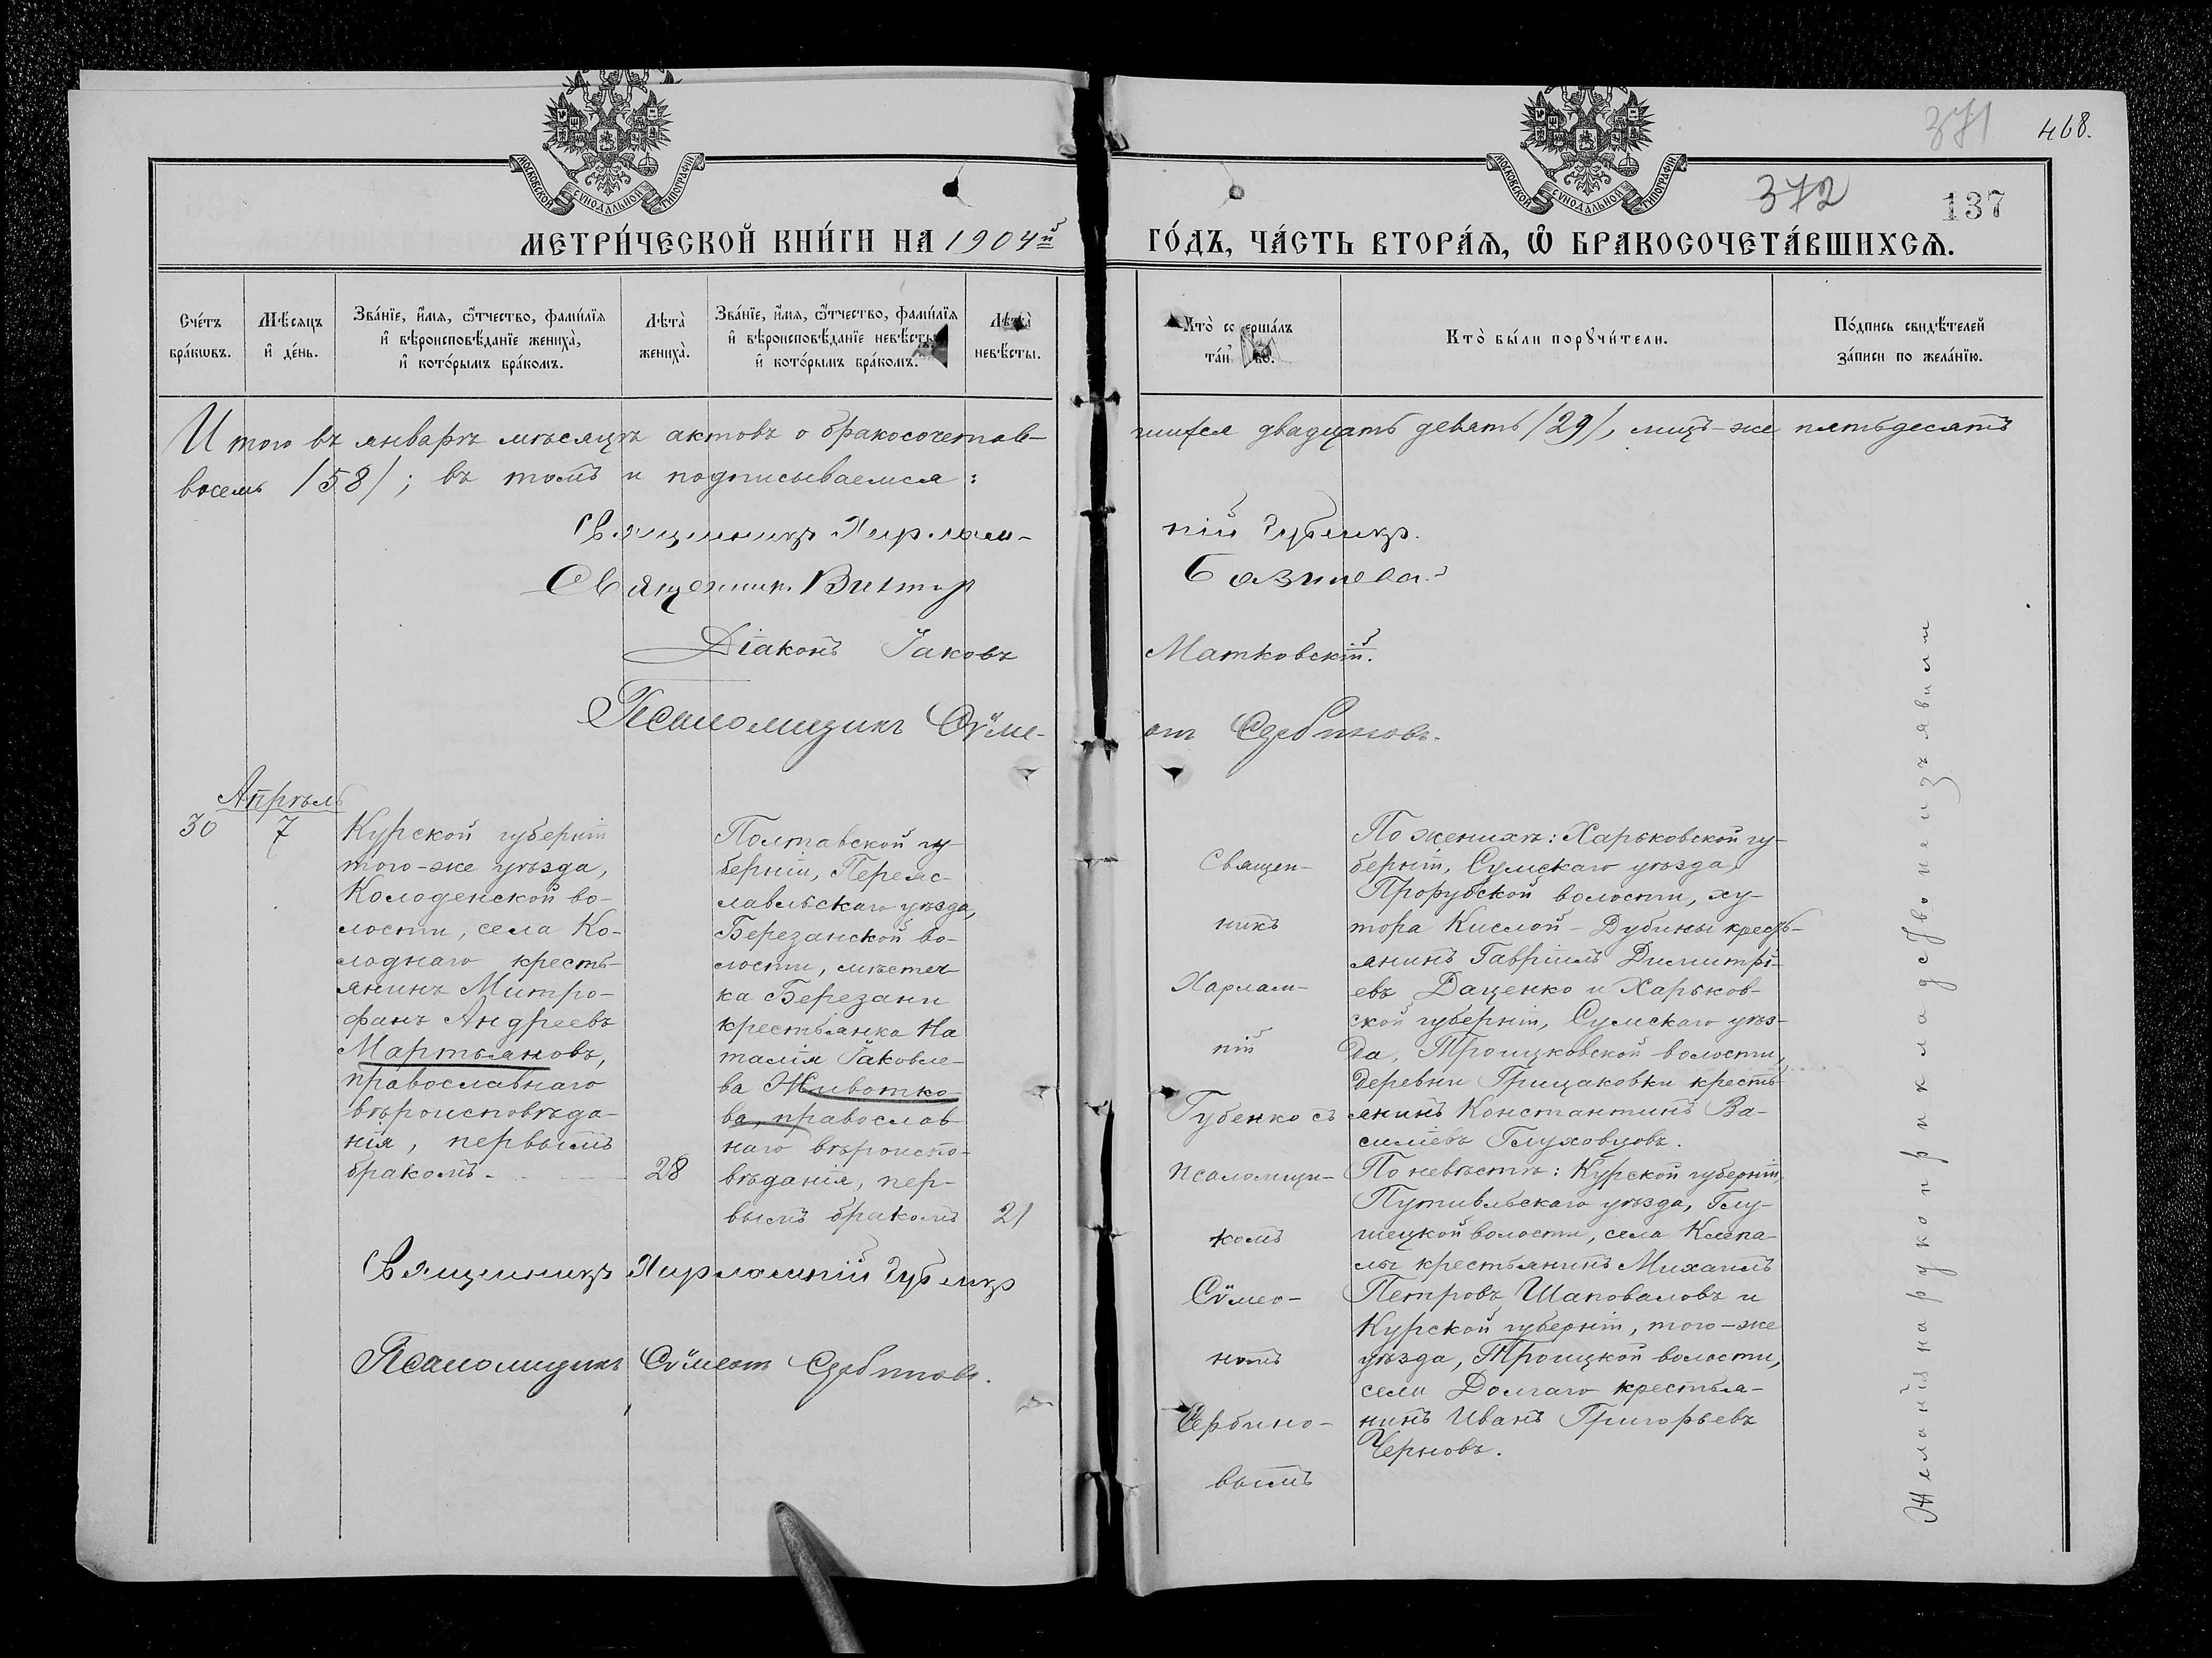 МОСКОВСКОЙ СѴНОДАЛЬНОЙ ТИПОГРАФІИ
МОСКОВСКОЙ СѴНОДАЛЬНОЙ ТИПОГРАФІИ
371 468.
372 137
МЕТРИ́ЧЕСКОЙ КНИ́ГИ НА 1904й
ГО́ДЪ, ЧА́СТЬ ВТОРА́Ѧ, Ѽ БРАКОСОЧЕТА́ВШИХСѦ.
Сче́тъ бра́кѡвъ.
Мѣ́сяцъ и҆ де́нь.
Зва́нїе, и҆́мѧ, ѻ҆́тчество, фами́лїѧ и҆ вѣроисповѣ́данїе жениха̀, и҆ кото́рымъ бра́комъ.
Лѣта̀ жениха̀.
Зва́нїе, и҆́мѧ, ѻ҆́тчество, фами́лїѧ и҆ вѣроисповѣ́данїе невѣ́сты, и҆ кото́рымъ бра́комъ.
Лѣта̀ невѣ́сты.
Кто̀ со ершалъ таи во.
Кто̀ бы́ли порꙋчи́тели.
По́дпись свидѣ́телей за́писи по жела́нїю.
Итого въ январѣ мѣсяцѣ актовъ о бракосочетав-
шихся двадцать девять /29/, лицъ-же пятьдесятъ
восемь /58/; въ томъ и подписываемся:
Священникъ Харлам-
пій Губенко.
Священник. Виктор
Базилева
Діаконъ Іаковъ
Матковскій.
Псаломщикъ Сѵме-
он Сербиновъ.
Апрѣль
30
7
Курской губерніи
того-же уѣзда,
Колоденской во-
лости, села Ко-
лоднаго кресть-
янинъ Митро-
фанъ Андреевъ
Мартьяновъ,
православнаго
вѣроисповѣда-
нія, первымъ
бракомъ.
28
Полтавской гу
берніи, Переяс-
лавльскаго уѣзда,
Березанской во-
лости, мѣстеч
ка Березани
крестьянка На
талія Іаковле-
ва Животко-
ва, православ
наго вѣроиспо-
вѣданія, пер-
вымъ бракомъ
21
Священникъ Харлампій Губенко
Псаломщикъ Сѵмеон Сербиновъ.
Священ-
никъ
Харлам-
пій
Губенко съ
псаломщи-
комъ
Сѵмео-
номъ
Сербино-
вымъ
По женихѣ: Харьковской гу-
берніи, Сумскаго уѣзда,
Прорубской волости, ху-
тора Кислой-Дубины кресть-
янинъ Гавріилъ Димитрі-
евъ Даценко и Харьков-
ской губерніи, Сумскаго уѣз-
да, Троицковской волости,
деревни Грицаковки кресть-
янинъ Константинъ Ва-
силіевъ Глуховцовъ.
По невѣстѣ: Курской губерніи,
Путивльскаго уѣзда, Глу-
шецкой волости, села Клепа-
лы крестьянинъ Михаилъ
Петровъ Шаповаловъ и
Курской губерніи, того-же
уѣзда, Троицкой волости,
села Долгаго крестья-
нинъ Иванъ Григорьевъ
Черновъ.
Желанія на рукоприкладство не изъявили